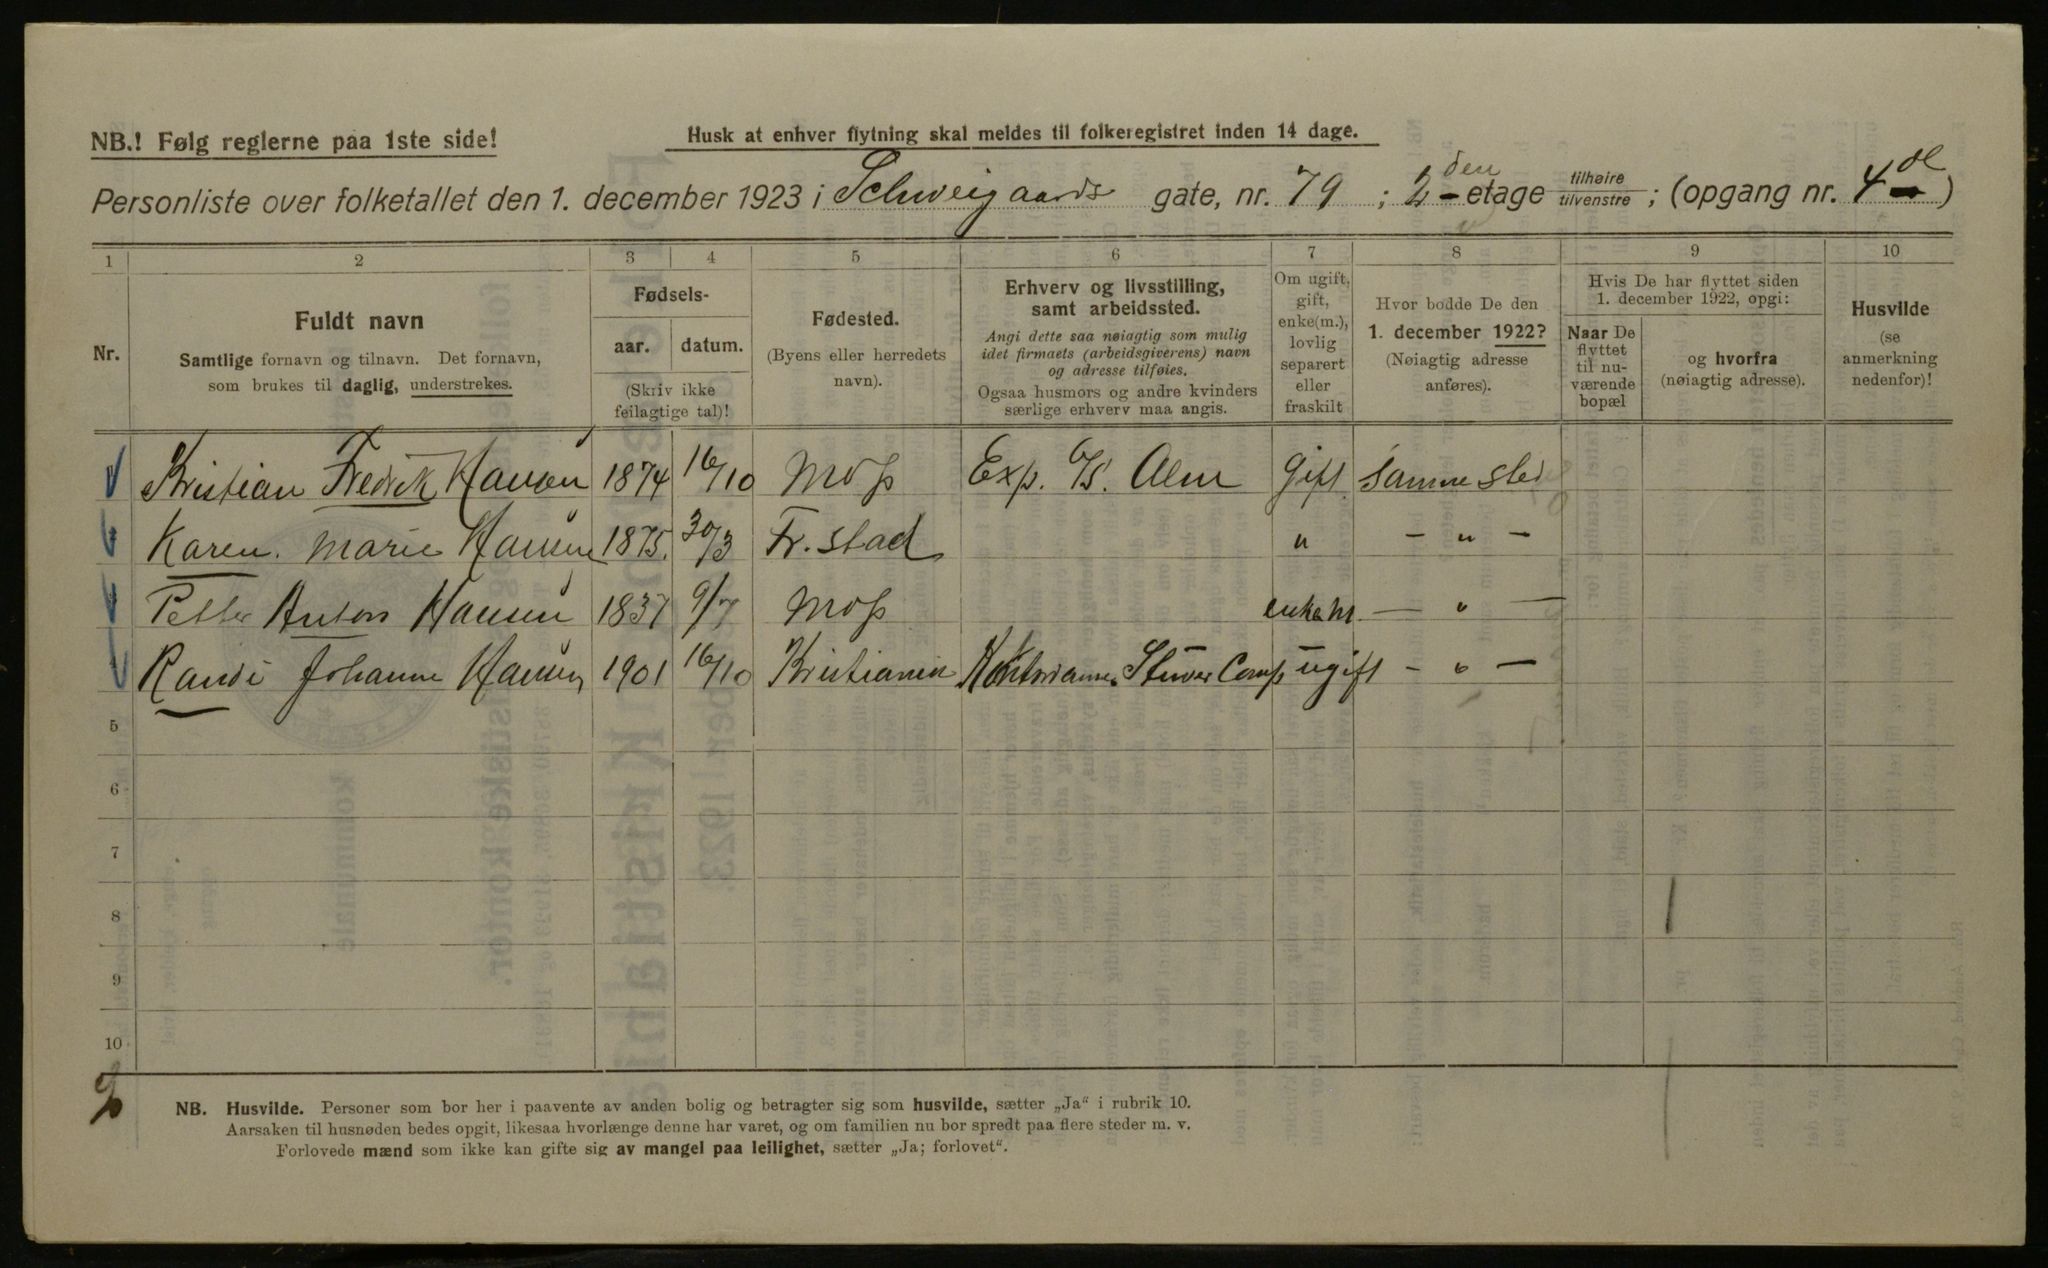 NB.! Følg reglerne paa 1ste side!
Husk at enhver flytning skal meldes til folkeregistret inden 14 dage.
Personliste over folketallet den 1. december 1923 i Schweigaards gate, nr. 79 ; 2den etage tilhøire/tilvenstre ; (opgang nr. 4 )
1 2 3 4 5 6 7 8 9 10
Nr.
Fuldt navn
Samtlige fornavn og tilnavn. Det fornavn,
som brukes til daglig, understrekes.
Fødsels-
aar. datum.
(Skriv ikke
feilagtige tal)!
Fødested.
(Byens eller herredets
navn).
Erhverv og livsstilling,
samt arbeidssted.
Angi dette saa nøiagtig som mulig
idet firmaets (arbeidsgiverens) navn
og adresse tilføies.
Ogsaa husmors og andre kvinders
særlige erhverv maa angis.
Om ugift,
gift,
enke(m.),
lovlig
separert
eller
fraskilt
Hvor bodde De den
1. december 1922?
(Nøiagtig adresse
anføres).
Hvis De har flyttet siden
1. december 1922, opgi:
Naar De
flyttet
til nu-
værende
bopæl
og hvorfra
(nøiagtig adresse).
Husvilde
(se
anmerkning
nedenfor)!
Kristian Fredrik Hansen 1874 16/10 Moss Exp. Gift samme sted
Karen. Marie Hansen 1875. 30/3 Fr. stad " - " -
Petter Anton Hansen 1837 9/7 Moss enkem. - " -
Randi Johanne Hansen 1901 16/10 Kristiania ugift - " -
5
6
7
8
9
10
NB. Husvilde. Personer som bor her i paavente av anden bolig og betragter sig som husvilde, sætter „Ja“ i rubrik 10.
Aarsaken til husnøden bedes opgit, likesaa hvorlænge denne har varet, og om familien nu bor spredt paa flere steder m. v.
Forlovede mænd som ikke kan gifte sig av mangel paa leilighet, sætter „Ja; forlovet“.